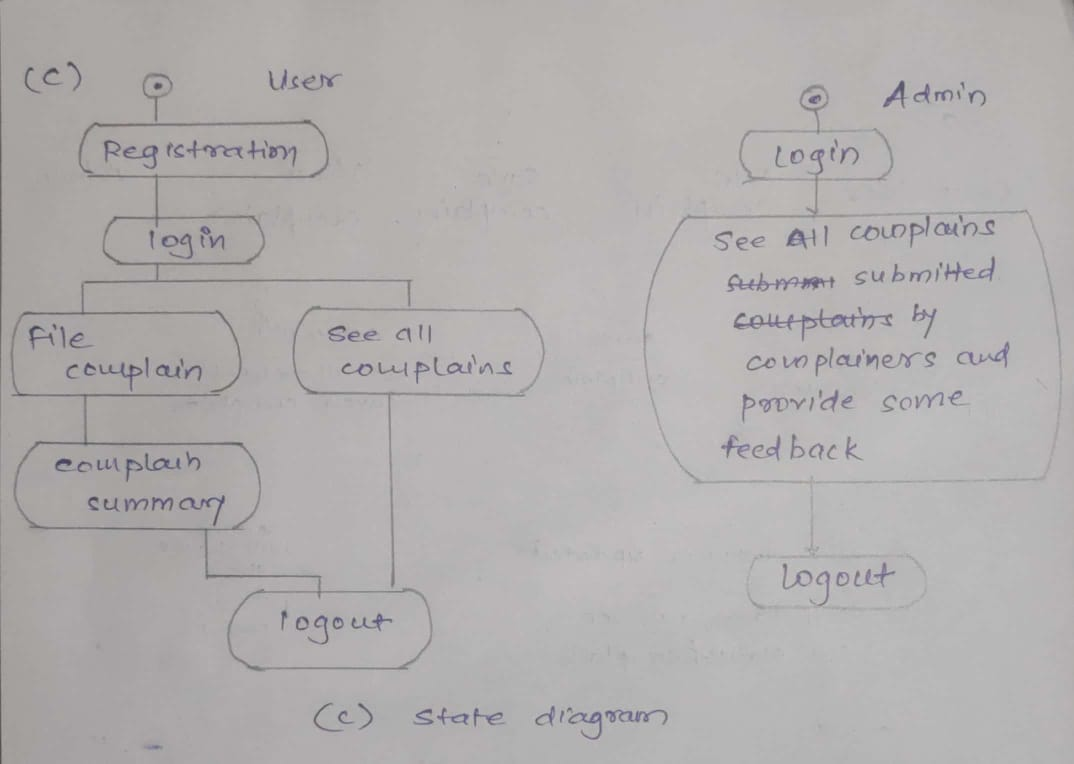 (c) User
Registration
login
File
complain
See all
complains
complain
summary
logout
Admin
Login
See All complains
submitted
by
complainers and
provide some
feedback
Logout
(c) state diagram